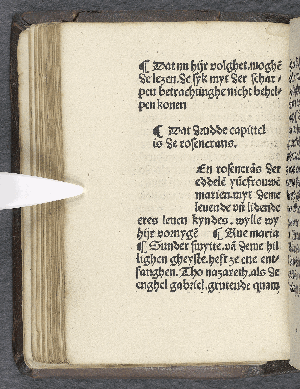 ¶ Wat nu hyr volghet. moghē
de lezen. de syk myt der schar⸗
pen betrachtinghe nicht behel⸗
pen konen
¶ Wat drudde capittel
is de rosencrans.
En rosencrās der
eddelē yūcfrouwē
marien. myt deme
leuende vū lidende
eres leuen kyndes. wylle wy
hyr vornygē ¶ Aue maria
¶ Sunder smytte. vā deme hil
lighen gheyste. heft ze ene ent⸗
fanghen. Tho nazareth. als de
enghel gabriel. grutende quam